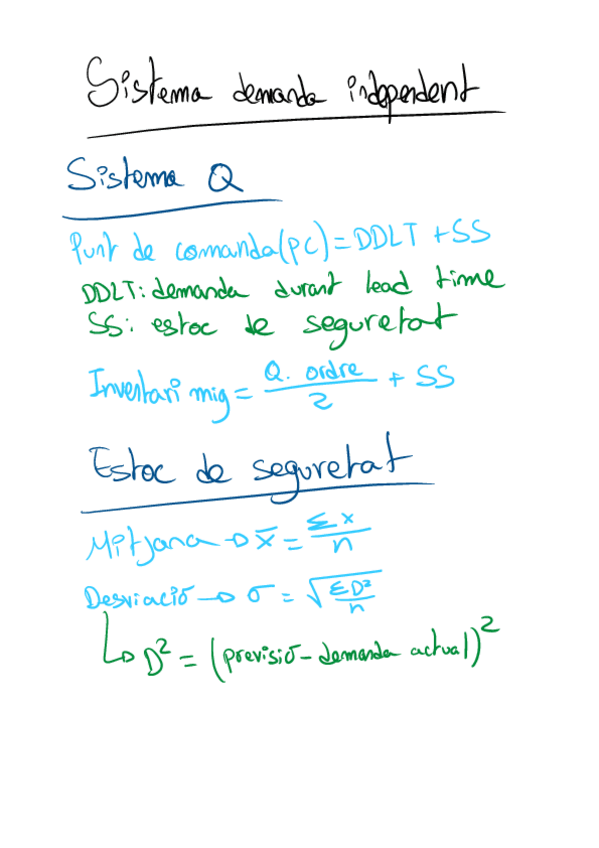 Sistema demanda independent
Sistema Q
Punt de comanda (PC) = DDLT + SS
DDLT: demanda durant lead time
SS: estoc de seguretat
Inventari mig = Q. ordre / 2 + SS
Estoc de seguretat
Mitjana → x̄ = Σx / n
Desviació → σ = √(ΣD² / n)
↳ D² = (previsió - demanda actual)²